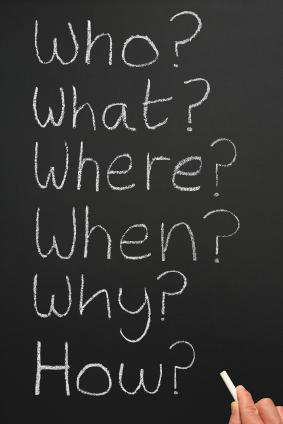 Who?
What?
Where?
When?
Why?
How?